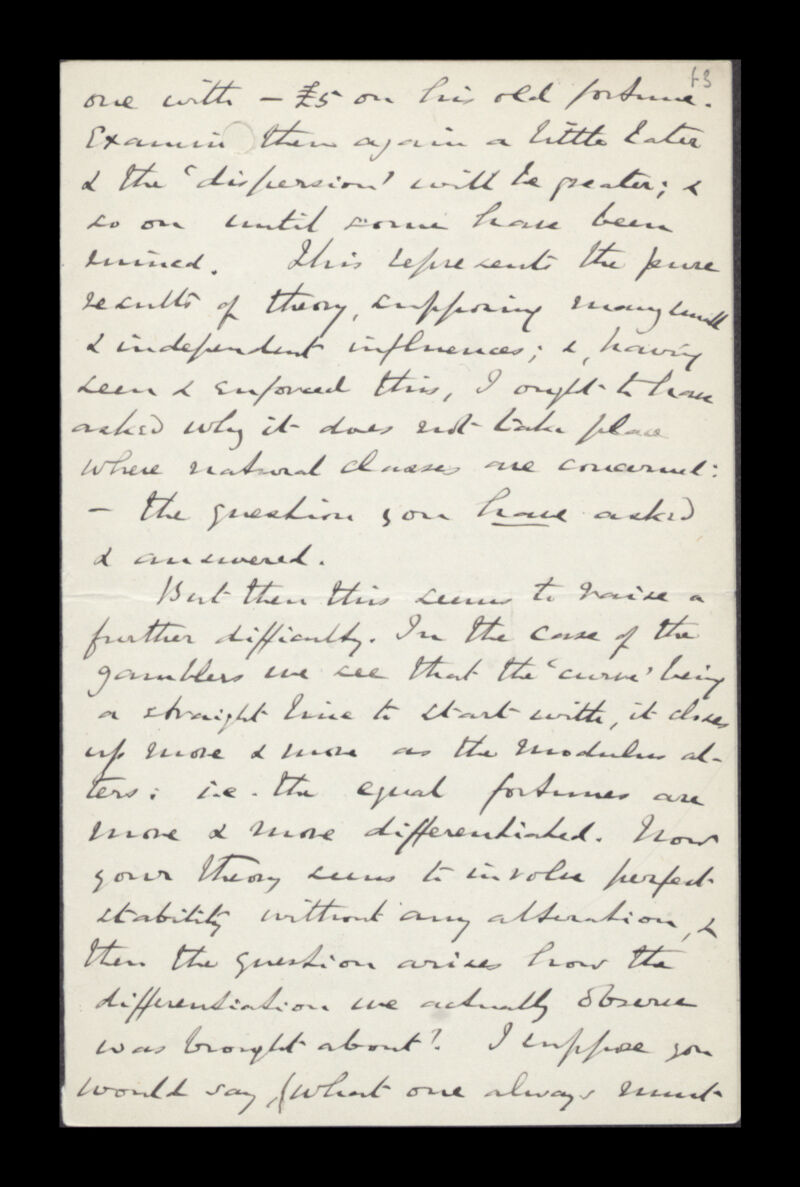 63
one with – £5 on his old fortune.
Examine them again a little later
& the 'dispersion' will be greater; &
so on until some have been
ruined. This represents the pure
results of theory, supposing many small
& independent influences; &, having
seen & enforced this, I ought to have
asked why it does not take place
where natural classes are concerned:
– the question you have asked
& answered.
But then this seems to raise a
further difficulty. In the case of the
gamblers we see that the 'curve' being
a straight line to start with, it closes
up more & more as the modulus al-
ters: i.e. the equal fortunes are
more & more differentiated. Now
your theory seems to involve perfect
stability without any alteration, &
then the question arises how the
differentiation we actually observe
was brought about? I suppose you
would say, (what one always must